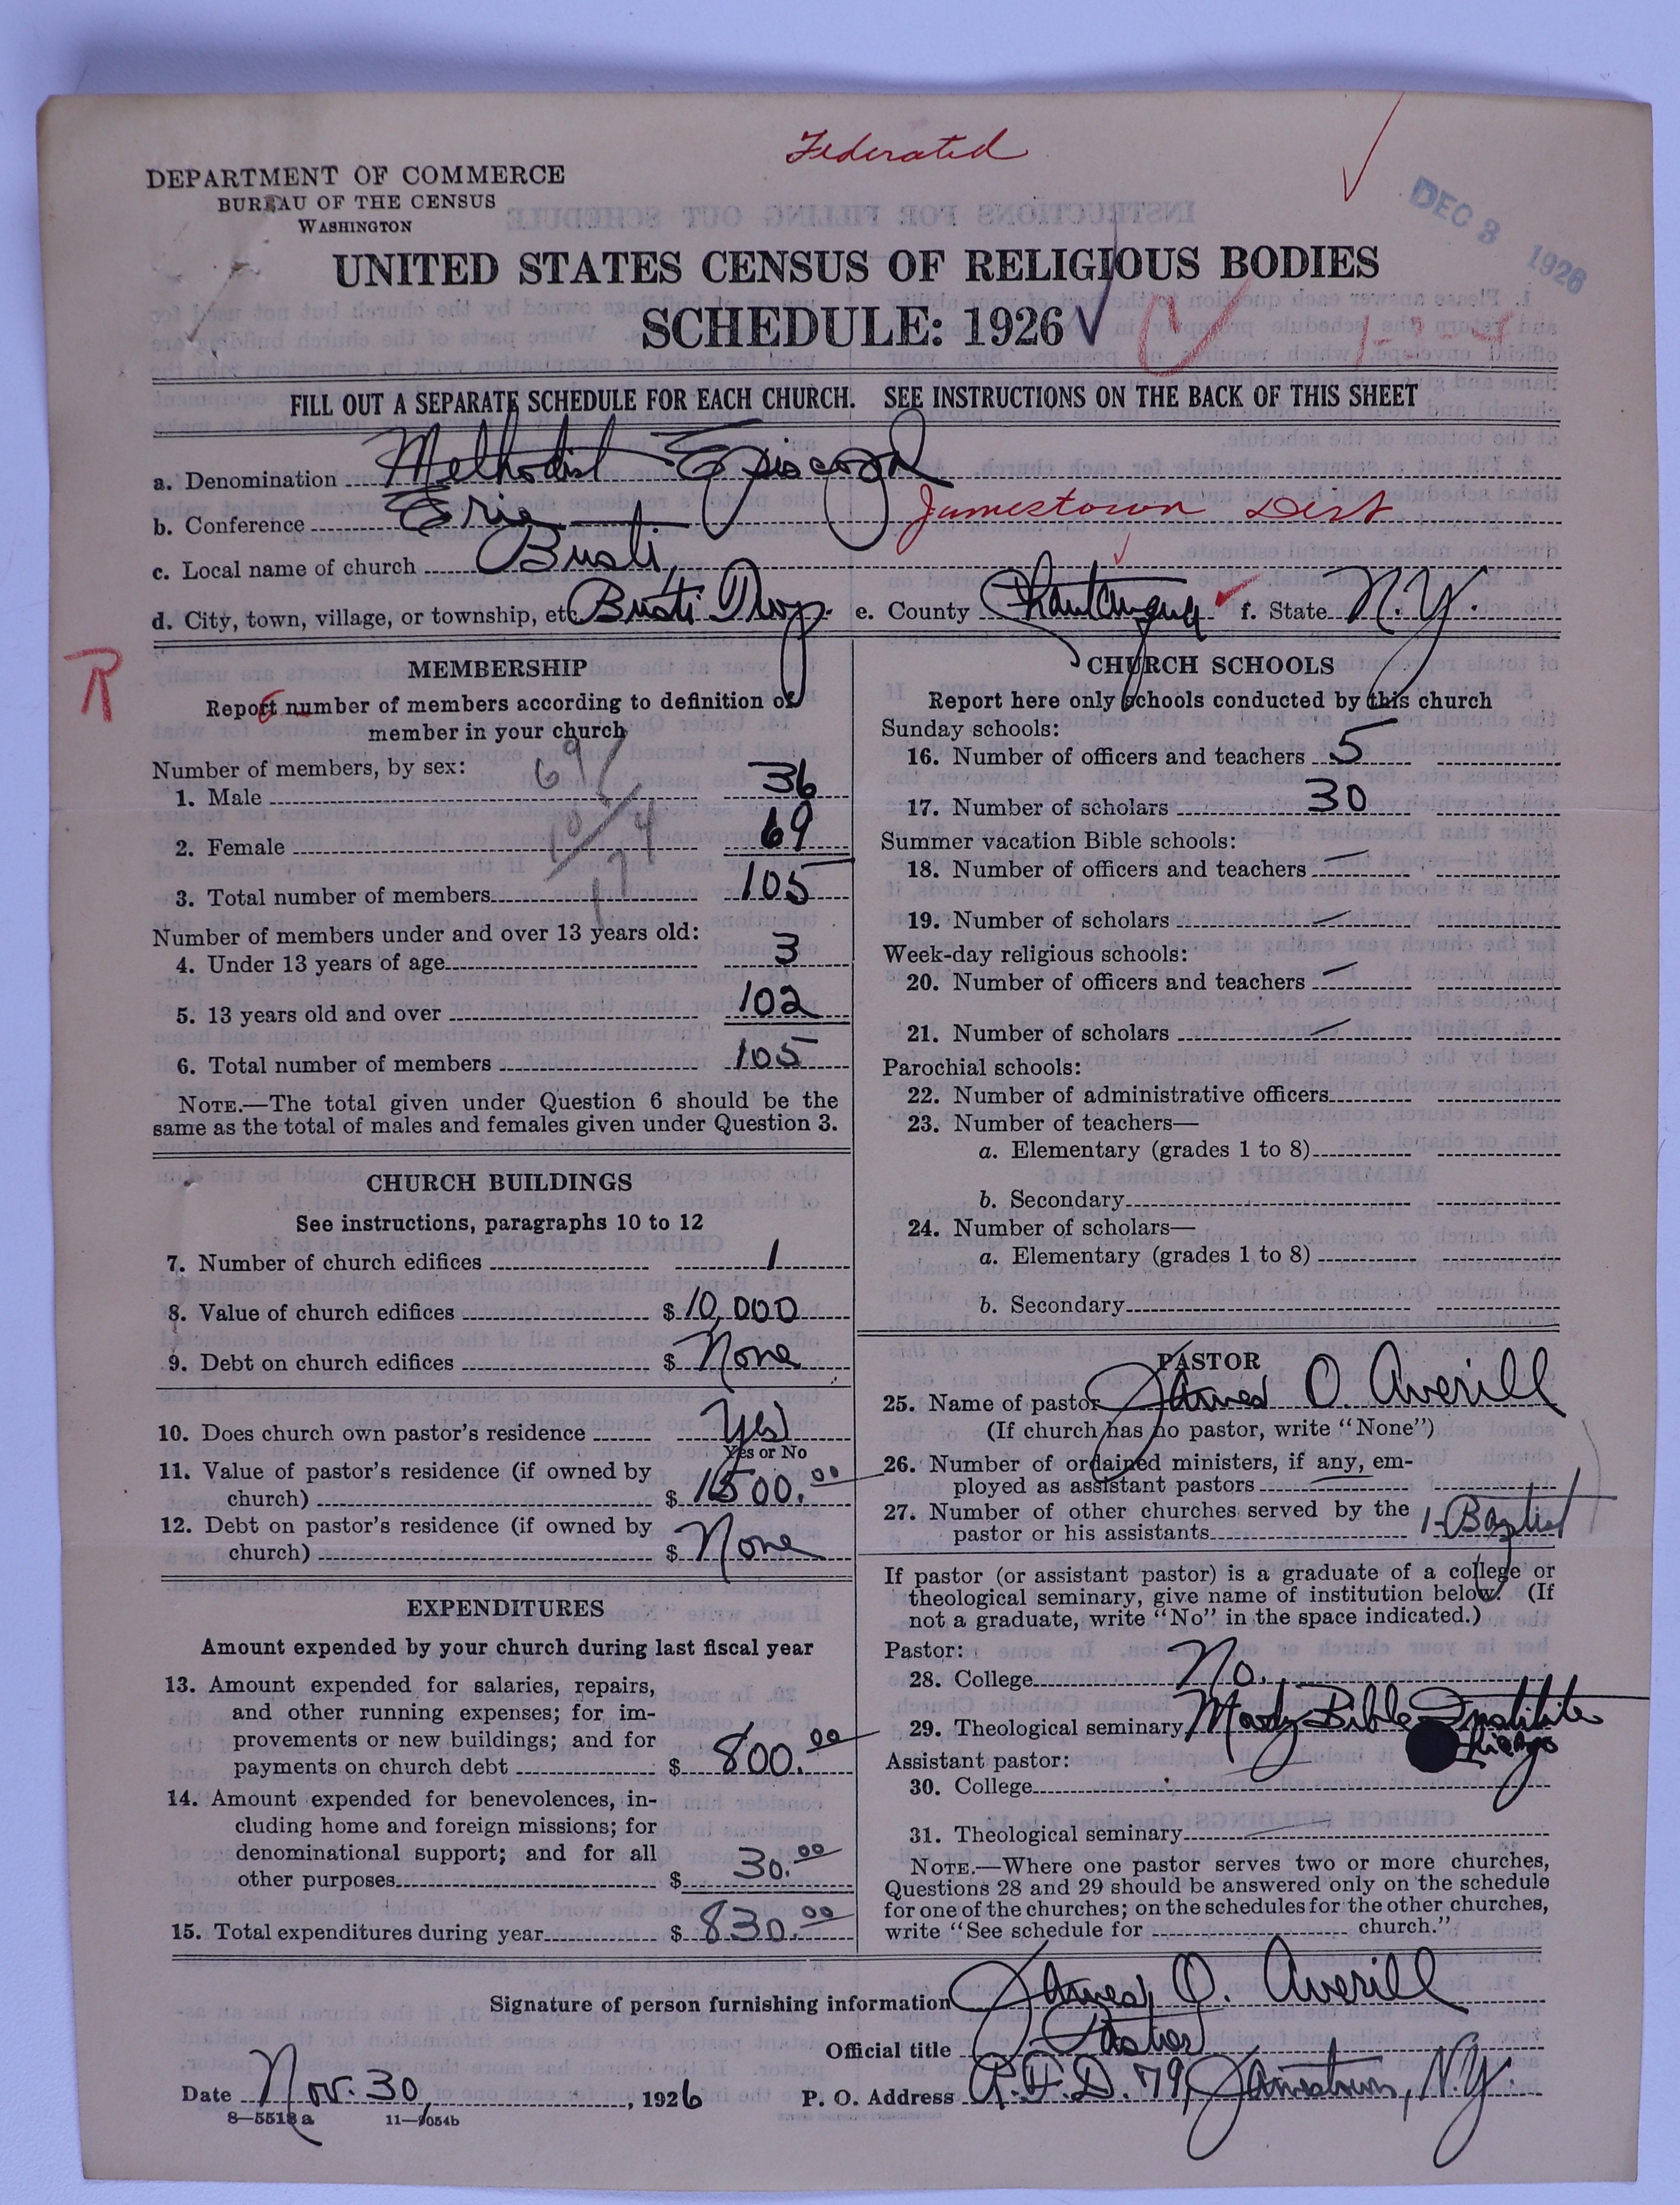 Federated
DEPARTMENT OF COMMERCE
BUREAU OF THE CENSUS
WASHINGTON
DEC 3 1926
UNITED STATES CENSUS OF RELIGIOUS BODIES
SCHEDULE: 1926
FILL OUT A SEPARATE SCHEDULE FOR EACH CHURCH. SEE INSTRUCTIONS ON THE BACK OF THIS SHEET
a. Denomination Methodist Episcopal
b. Conference Erie Jamestown Dist
c. Local name of church Busti
d. City, town, village, or township, etc. Busti Twp. e. County Chautauqua f. State N.Y.
R
MEMBERSHIP
Report number of members according to definition of
member in your church
Number of members, by sex:
1. Male 36
2. Female 69
3. Total number of members 105
Number of members under and over 13 years old:
4. Under 13 years of age 3
5. 13 years old and over 102
6. Total number of members 105
NOTE.—The total given under Question 6 should be the
same as the total of males and females given under Question 3.
CHURCH BUILDINGS
See instructions, paragraphs 10 to 12
7. Number of church edifices 1
8. Value of church edifices $ 10,000
9. Debt on church edifices $ None
10. Does church own pastor's residence Yes
Yes or No
11. Value of pastor's residence (if owned by
church) $ 1500.00
12. Debt on pastor's residence (if owned by
church) $ None
EXPENDITURES
Amount expended by your church during last fiscal year
13. Amount expended for salaries, repairs,
and other running expenses; for im-
provements or new buildings; and for
payments on church debt $ 800.00
14. Amount expended for benevolences, in-
cluding home and foreign missions; for
denominational support; and for all
other purposes $ 30.00
15. Total expenditures during year $ 830.00
CHURCH SCHOOLS
Report here only schools conducted by this church
Sunday schools:
16. Number of officers and teachers 5
17. Number of scholars 30
Summer vacation Bible schools:
18. Number of officers and teachers —
19. Number of scholars —
Week-day religious schools:
20. Number of officers and teachers —
21. Number of scholars —
Parochial schools:
22. Number of administrative officers
23. Number of teachers—
a. Elementary (grades 1 to 8)
b. Secondary
24. Number of scholars—
a. Elementary (grades 1 to 8)
b. Secondary
PASTOR
25. Name of pastor James O. Averill
(If church has no pastor, write "None")
26. Number of ordained ministers, if any, em-
ployed as assistant pastors —
27. Number of other churches served by the
pastor or his assistants 1-Baptist
If pastor (or assistant pastor) is a graduate of a college or
theological seminary, give name of institution below. (If
not a graduate, write "No" in the space indicated.)
Pastor:
28. College No.
29. Theological seminary Moody Bible Institute
Chicago
Assistant pastor:
30. College
31. Theological seminary —
NOTE.—Where one pastor serves two or more churches,
Questions 28 and 29 should be answered only on the schedule
for one of the churches; on the schedules for the other churches,
write "See schedule for church."
Signature of person furnishing information James O. Averill
Official title Pastor
Date Nov. 30, 1926 P. O. Address R.F.D. 79, Jamestown, N.Y.
8—5518 a 11—9054b